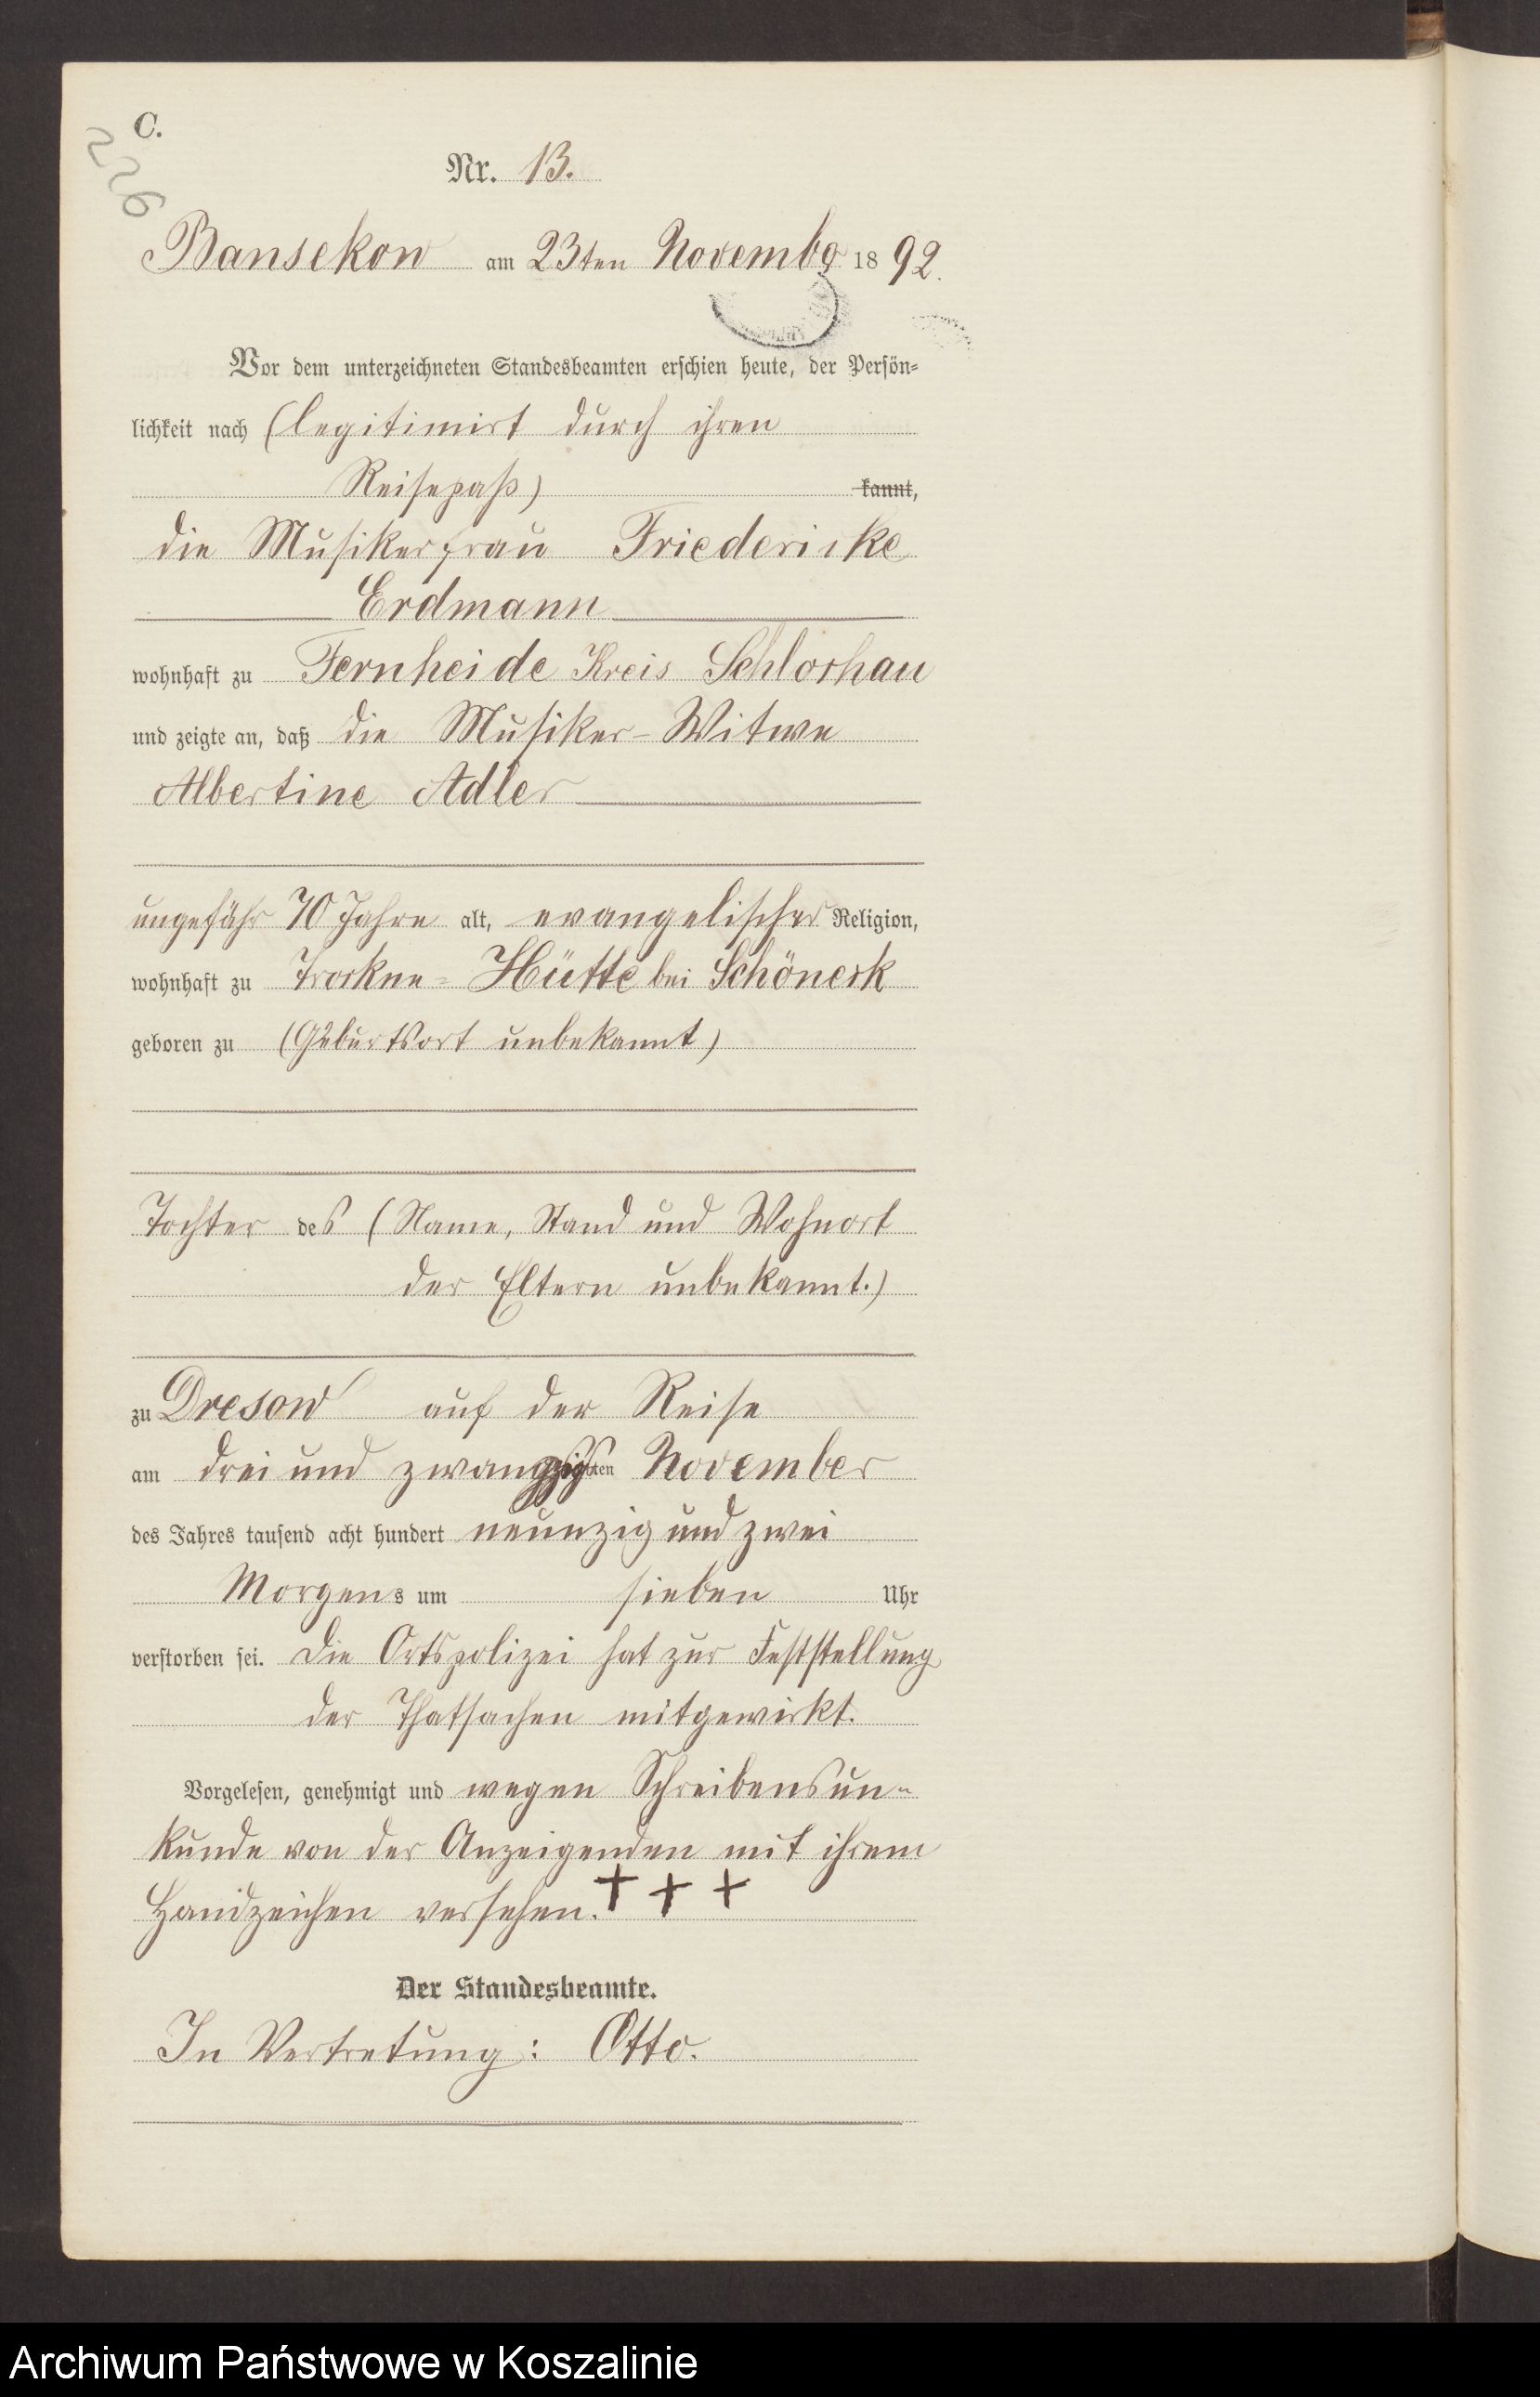 C.
226
Nr. 13.
Bansekow am 23ten Novembr 1892.
Vor dem unterzeichneten Standesbeamten erschien heute, der Persön-
lichkeit nach (legitimirt durch ihren
Reisepaß) kannt,
die Musikerfrau Friedericke
Erdmann
wohnhaft zu Fernheide Kreis Schlochau
und zeigte an, daß die Musiker-Witwe
Albertine Adler
ungefähr 70 Jahre alt, evangelischer Religion,
wohnhaft zu Trockne-Hütte bei Schöneck
geboren zu (Geburtsort unbekannt)
Tochter des (Name, Stand und Wohnort
der Eltern unbekannt.)
zu Dresow auf der Reise
am drei und zwanzigsten November
des Jahres tausend acht hundert neunzig und zwei
Morgens um sieben Uhr
verstorben sei. Die Ortspolizei hat zur Feststellung
der Thatsachen mitgewirkt.
Vorgelesen, genehmigt und wegen Schreibensun-
kunde von der Anzeigenden mit ihrem
Handzeichen versehen. + + +
Der Standesbeamte.
In Vertretung: Otto.
Archiwum Państwowe w Koszalinie